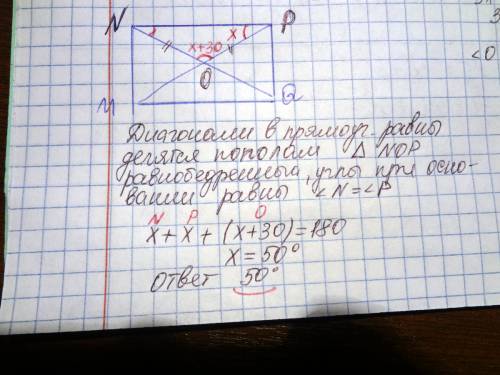 N P
x
x+30
O
M Q
Диагонали в прямоуг. равны
делятся пополам △ NOP
равнобедренный, углы при осно-
вании равны, <N=<P
N P O
x+x+(x+30)=180
x=50°
Ответ 50°
3
<0